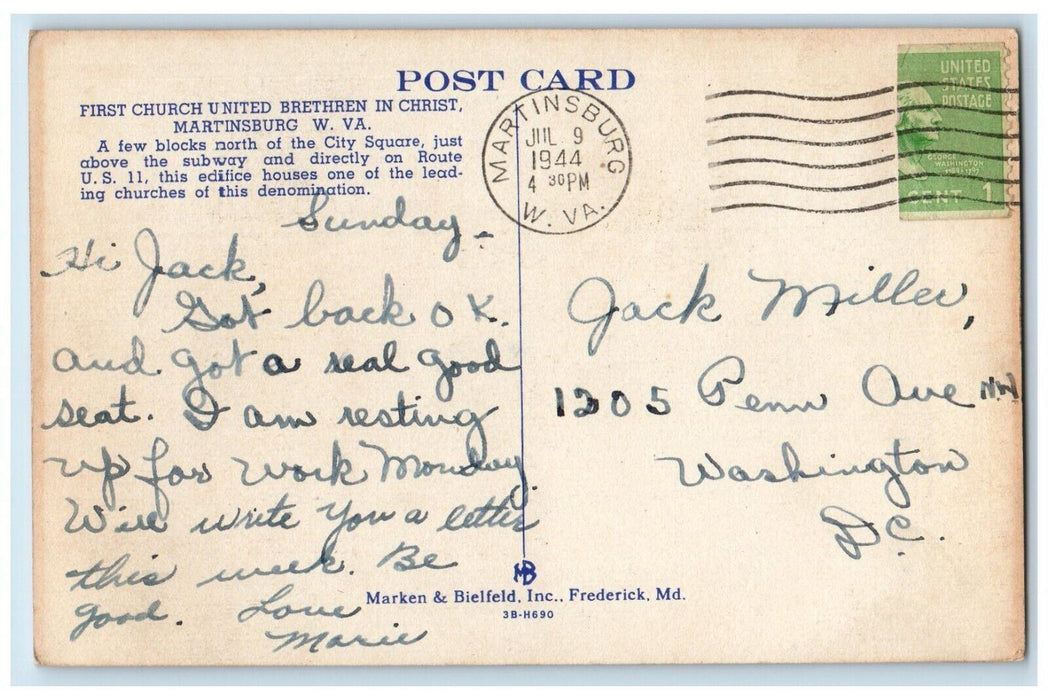 POST CARD
FIRST CHURCH UNITED BRETHREN IN CHRIST,
MARTINSBURG W. VA.
A few blocks north of the City Square, just
above the subway and directly on Route
U. S. 11, this edifice houses one of the lead-
ing churches of this denomination.
MARTINSBURG
JUL 9
1944
4 30 PM
W. VA.
UNITED
STATES
POSTAGE
GEORGE
WASHINGTON
CENT 1
Sunday -
Hi Jack,
Got back O K.
and got a real good
seat. I am resting
up for work Monday.
Will write you a letter
this week. Be
good. Love
Marie
Jack Miller,
1205 Penn Ave N.W
Washington
D.C.
MB
Marken & Bielfeld, Inc., Frederick, Md.
3B-H690